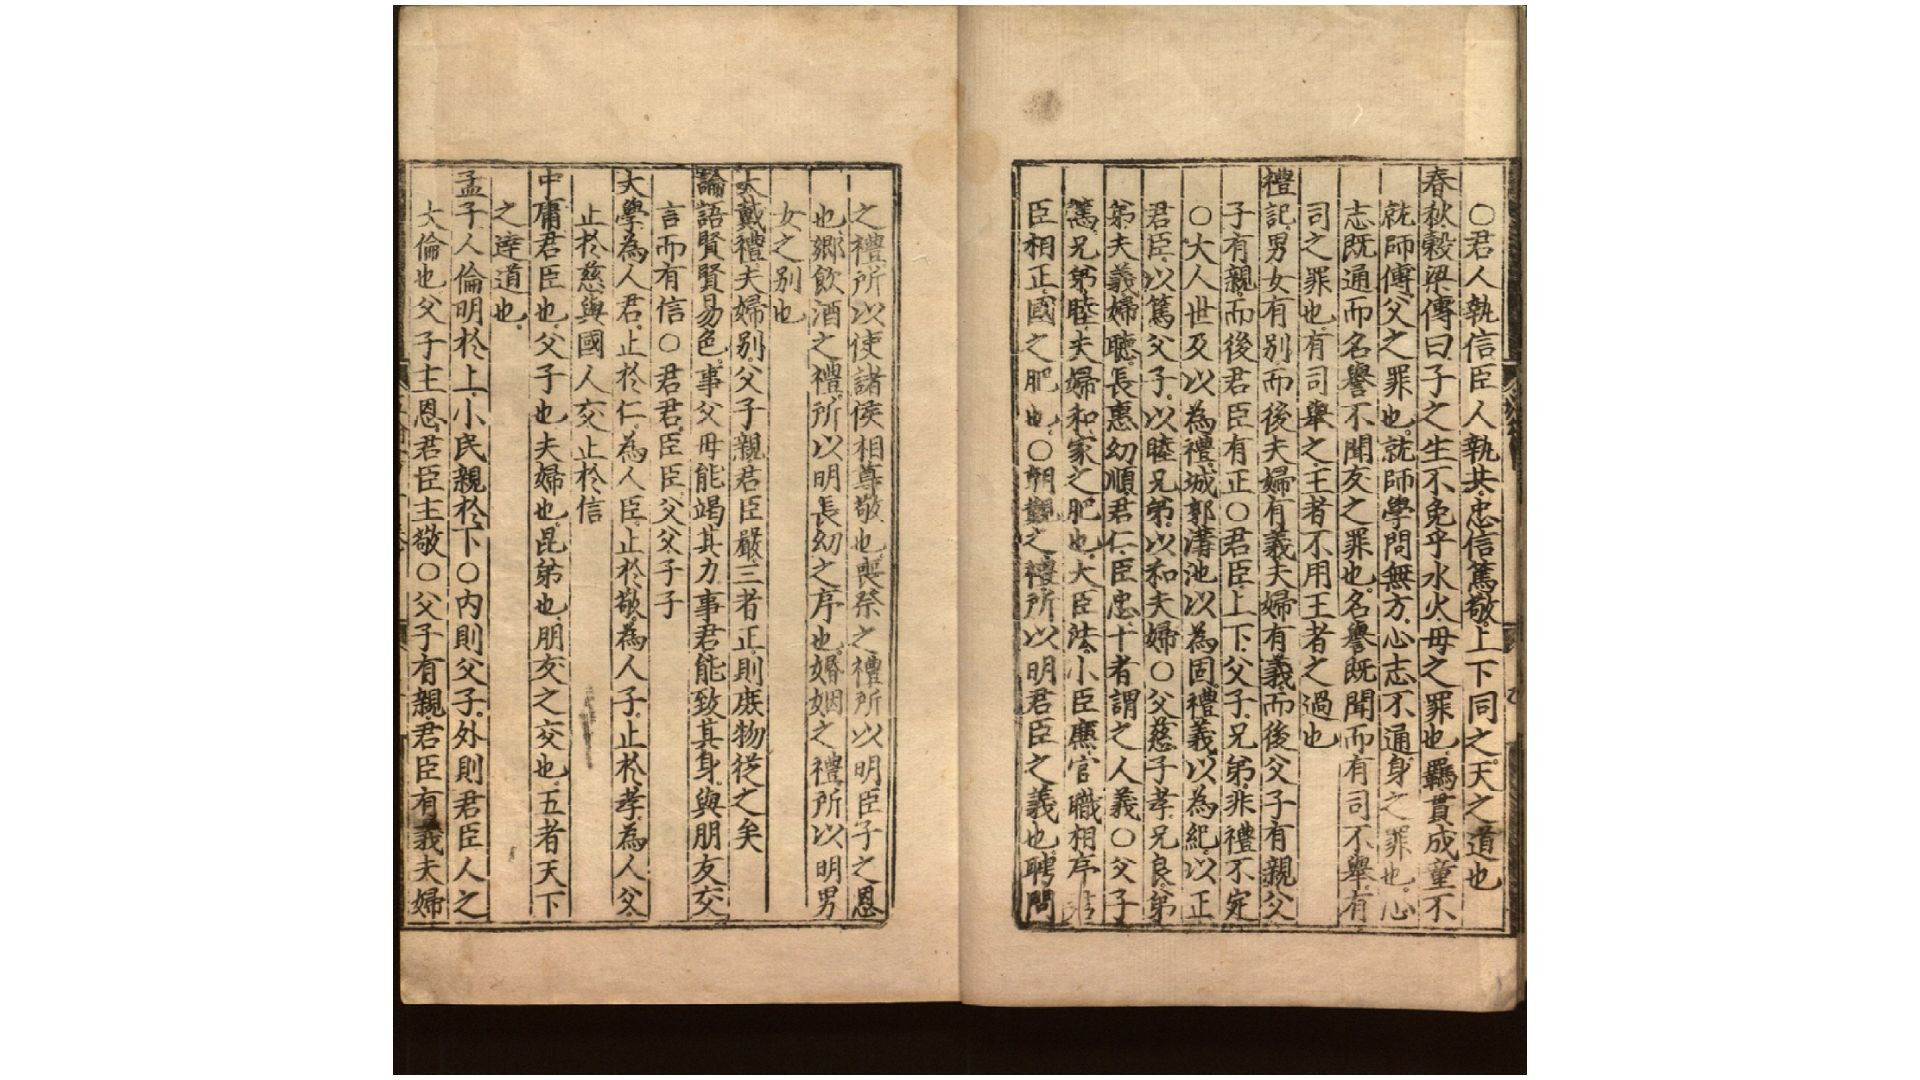 ○君人執信臣人執共忠信篤敬上下同之天之道也
春秋糓梁傳曰子之生不免乎水火母之罪也羈貫成童不
就師傅父之罪也就師學問無方心志不通身之罪也心
志既通而名譽不聞友之罪也名譽既聞而有司不舉有
司之罪也有司舉之王者不用王者之過也
禮記男女有別而後夫婦有義夫婦有義而後父子有親父
子有親而後君臣有正○君臣上下父子兄弟非禮不定
○大人世及以為禮城郭溝池以為固禮義以為紀以正
君臣以篤父子以睦兄弟以和夫婦○父慈子孝兄良弟
弟夫義婦聽長惠幼順君仁臣忠十者謂之人義○父子
篤兄弟睦夫婦和家之肥也大臣法小臣廉官職相序君
臣相正國之肥也○朝覲之禮所以明君臣之義也聘問
之禮所以使諸侯相尊敬也喪祭之禮所以明臣子之恩
也鄉飲酒之禮所以明長幼之序也婚姻之禮所以明男
女之別也
大戴禮夫婦別父子親君臣嚴三者正則庶物從之矣
論語賢賢易色事父母能竭其力事君能致其身與朋友交
言而有信○君君臣臣父父子子
大學為人君止於仁為人臣止於敬為人子止於孝為人父
止於慈與國人交止於信
中庸君臣也父子也夫婦也昆弟也朋友之交也五者天下
之達道也
孟子人倫明於上小民親於下○內則父子外則君臣人之
大倫也父子主恩君臣主敬○父子有親君臣有義夫婦